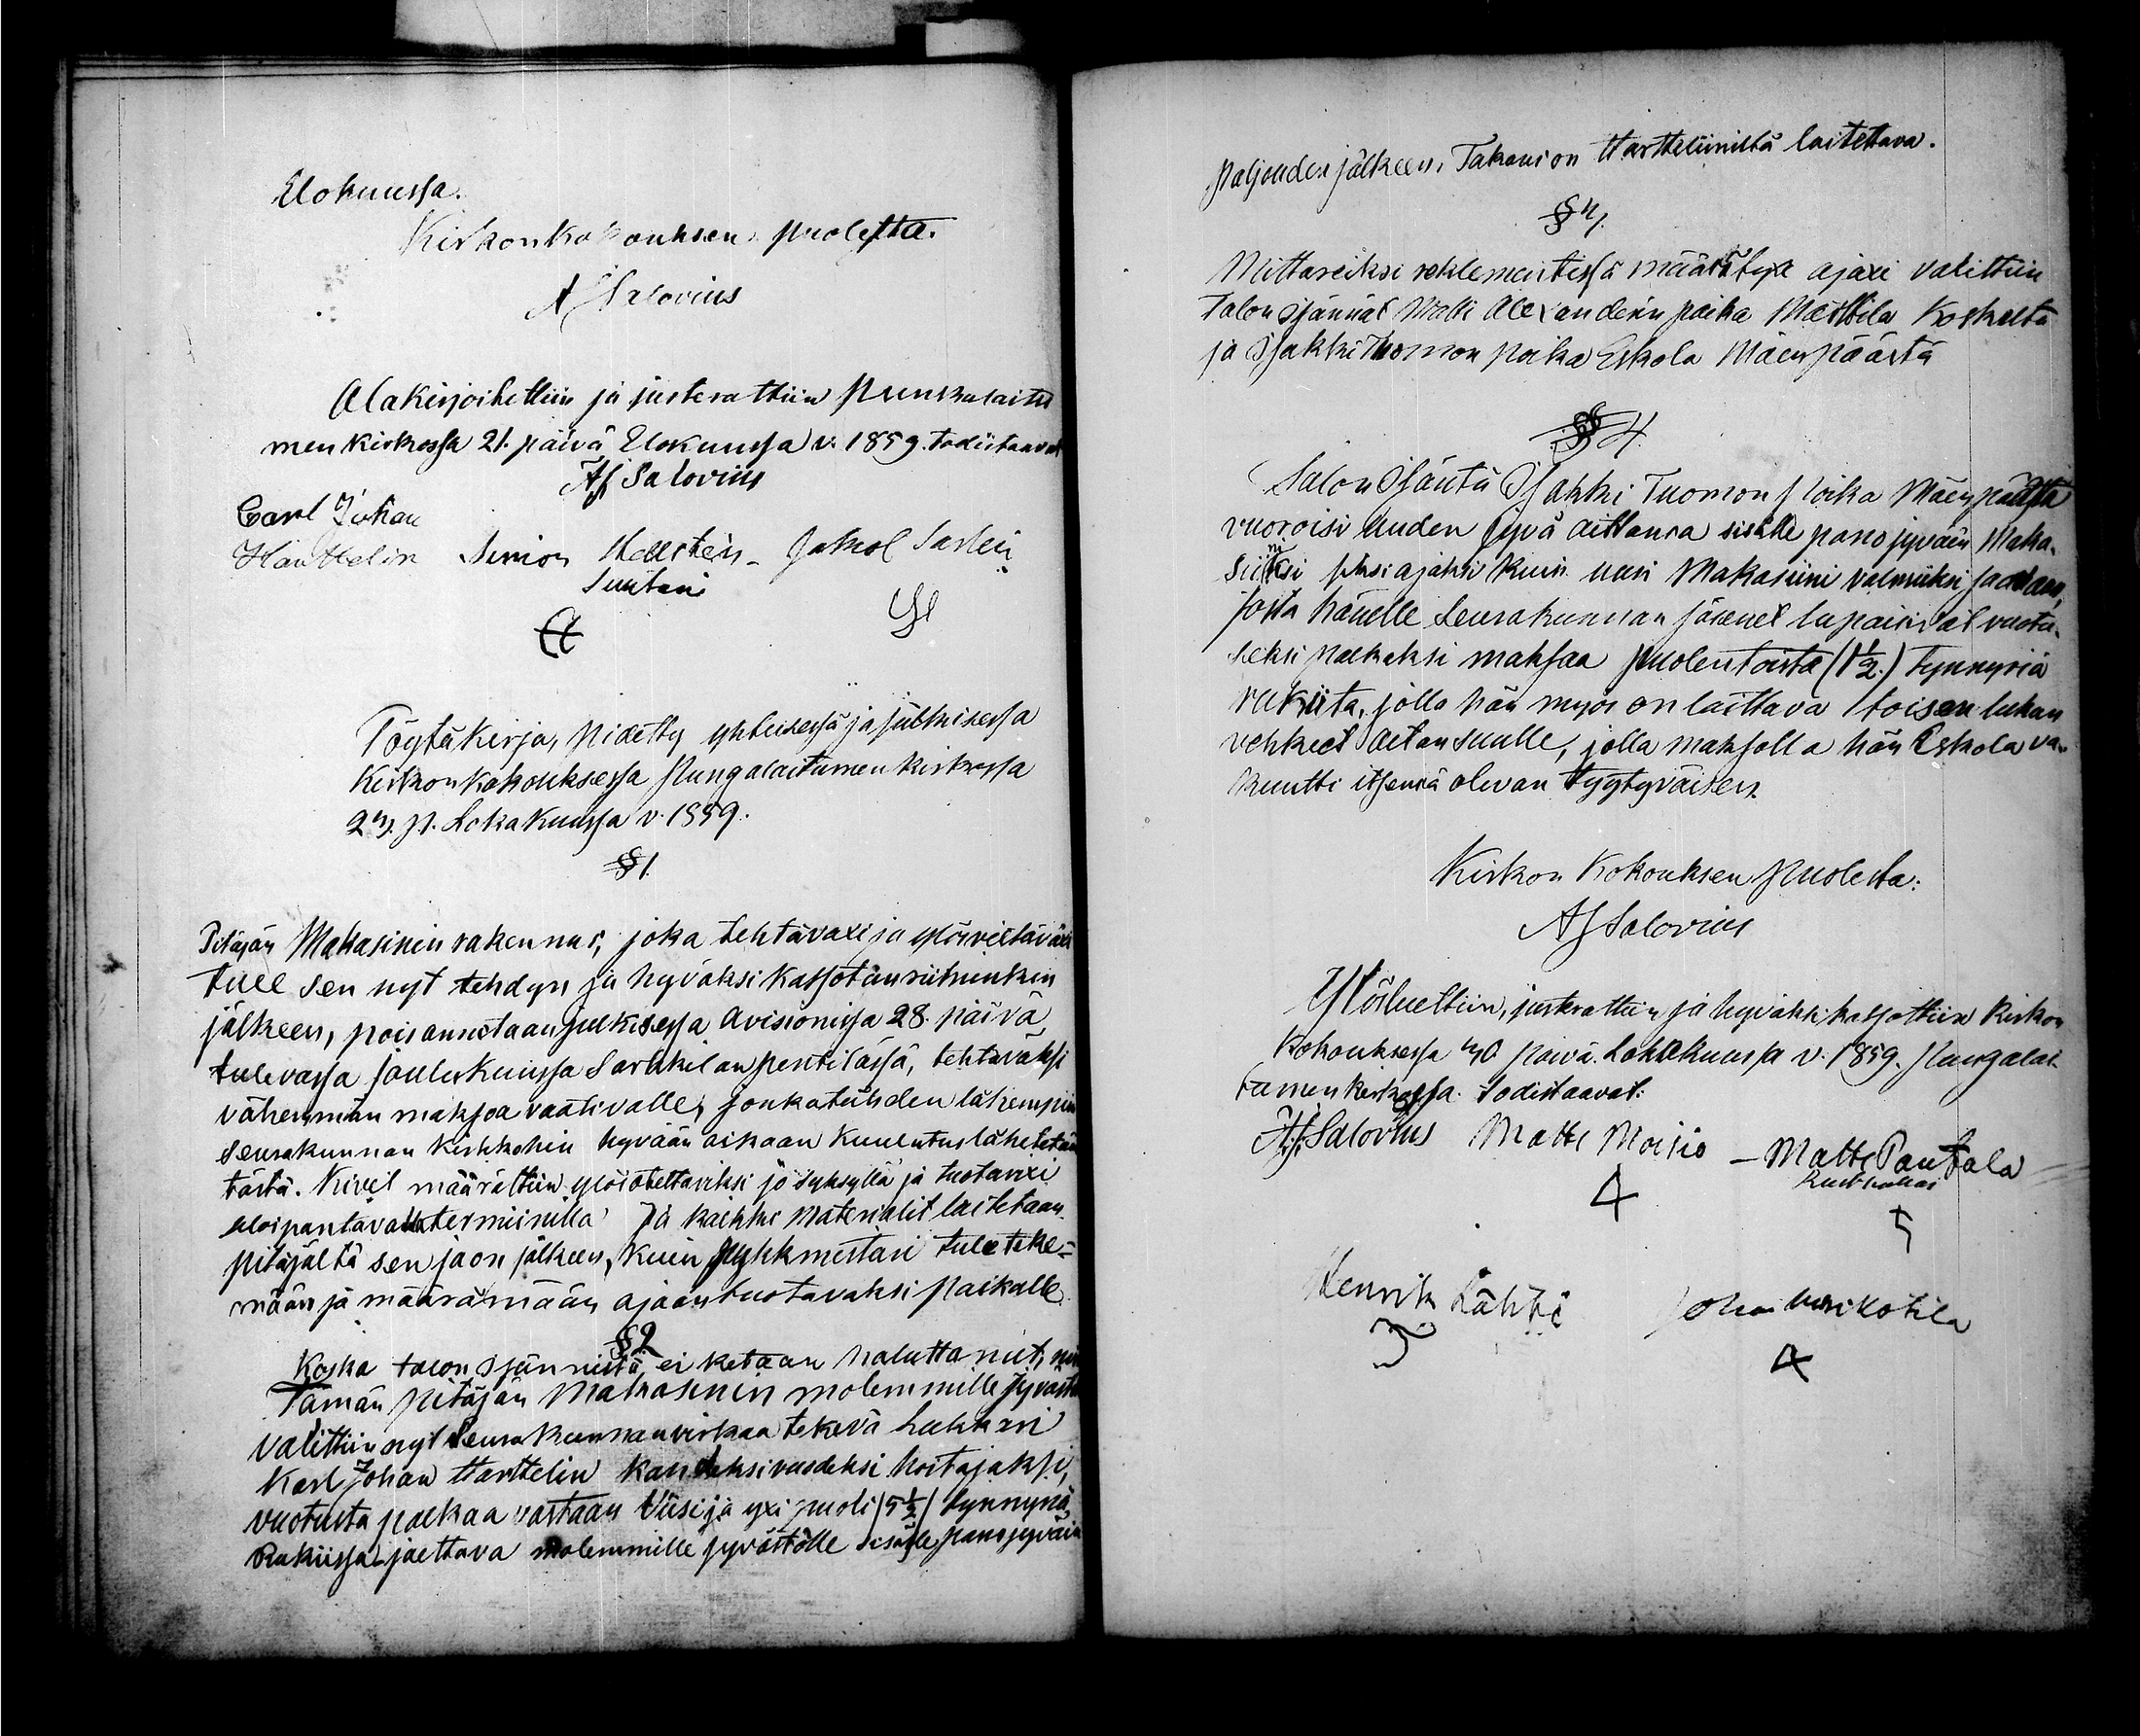 Elokuussa.
Kirkonkokouksen puolesta.
AJSalovius
Alakirjoitettiin ja justerattiin Punkalaitu
men kirkossa 21. päivä Elokuussa v. 1859. todistaavat
AJ Salovius
Carl Johan
Harttelin Simon Hellsten - Jakob Sarlin
Suntari
Töytäkirja, pidetty yhteisessä ja julkisessa
Kirkonkokouksessa Pungalaitumen kirkossa
23. p. Lokakuussa v. 1859.
§ 1.
Pitäjän Makasinin rakennus, joka tehtäväxi ja ylösvieltäväxi
tule sen nyt tehdyn ja hyväksi katsotun
jälkeen, poisannetaan julkisessa avisionissa 28. päivä
tulevassa Jouluskuussa Sarkkilan penttilässä, tehtäväksi
vähemmän maksoa vaativalle, jonkatähden lähempiin
seurakunnan kirkkohin hyvään aikaan kuulutus lähetetään
tästä. Kivet määrättiin ylösotettaviksi jo syksyllä ja tuotavaxi
ulospantavalla terminilla ja kaikki Materialit laitetaan
pitäjältä sen jaon jälkeen, kuin pytzkmestari tulee teke-
mään ja määrämään ajaan tuotavaksi paikalle.
§ 2
Koska talon Isännistä ei ketään haluttanut, niin
Tämän pitäjän Makasinin molemmille Jyvästö
valittiin nyt Seurakunnan virkaa tekevä Lukkari
Karl Johan Harttelin kahdeksi vuodeksi hoitajaksi,
vuotusta palkkaa vastaan Viisi ja yxi puoli (5 1/2) tynnyriä
Rukiissa jaettava molemmille jyvästölle sisälle pano jyväin
paljouden jälkeen, Takaus on Harttelinilta laitettava.
§ 3.
Mittareiksi reklementissä määrätyxi ajaxi valittiin
Talon Isännät Matti Alexanderin poika Marttila Koskelta
ja Isakki Tuomon poika Eskola Mäenpäästä
§ 4.
Talon Isäntä Isakki Tuomon poika Mäenpäästä
vuoroisi Uuden Jyvä aittansa sisälle pano jyväin Maka-
siiniksi siksi ajaksi kuin uusi Makasiini valmiiksi saadaan,
josta hänelle Seurakunnan jäsenet lupaisivat vuotu-
seksi palkaksi maksaa puolentoista (1 1/2.) Tynnyriä
rukiita, jolla hän myös on laittava toisen lukun
vehkeet aitan suulle, jolla maksolla hän Eskola va-
kuutti itsensä olevan tyytyväisen.
Kirkon Kokouksen Puolesta:
AJSalovius
Ylösluettiin, justerattiin ja hyväksi katsottiin Kirkon
Kokouksessa 30 päivä Lokakuussa v. 1859. Pungalai-
tumen kirkossa. todistaavat:
AJ. Salovius Matti Moisio - Matti Pantala
4
Henrik Lähti Johan Uusikotila
3
4